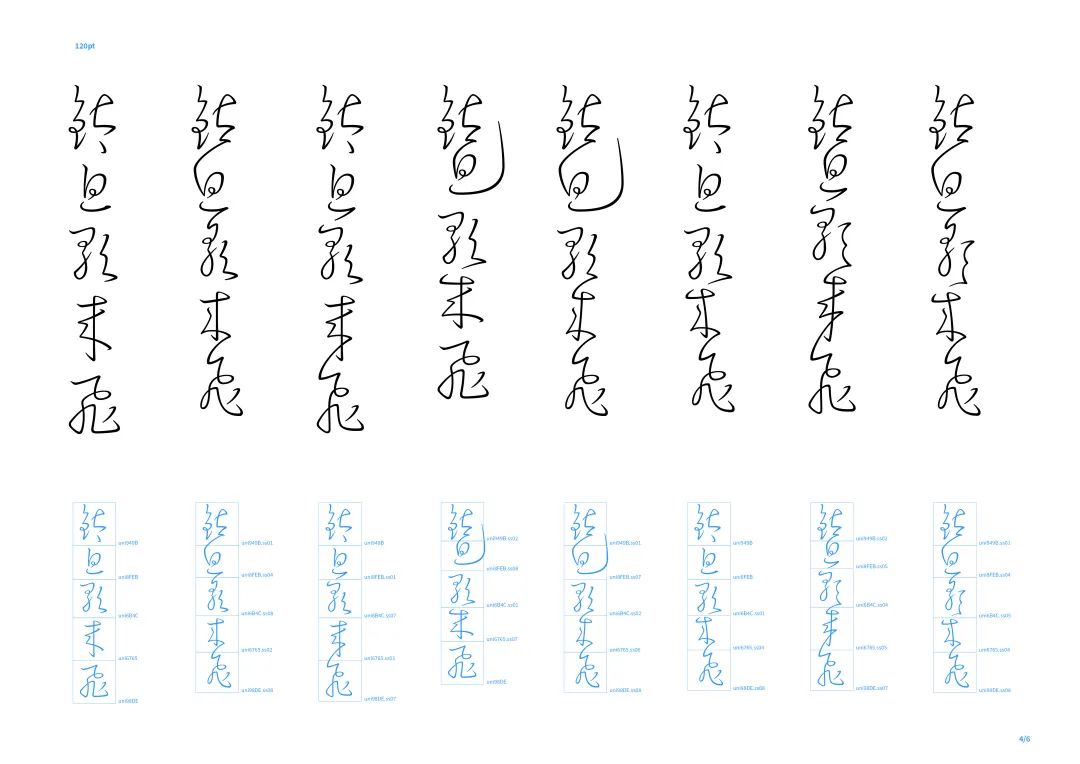 120pt
钛迫歌来飞
钛迫歌来飞
钛迫歌来飞
钛迫歌来飞
钛迫歌来飞
钛迫歌来飞
钛迫歌来飞
钛迫歌来飞
钛迫歌来飞
uni949B
uni8FEB
uni6B4C
uni6765
uni98DE
钛迫歌来飞
uni949B.ss01
uni8FEB.ss04
uni6B4C.ss08
uni6765.ss02
uni98DE.ss08
钛迫歌来飞
uni949B
uni8FEB.ss01
uni6B4C.ss07
uni6765.ss03
uni98DE.ss07
钛迫歌来飞
uni949B.ss02
uni8FEB.ss08
uni6B4C.ss01
uni6765.ss07
uni98DE
钛迫歌来飞
uni949B.ss01
uni8FEB.ss07
uni6B4C.ss02
uni6765.ss06
uni98DE.ss08
钛迫歌来飞
uni949B
uni8FEB
uni6B4C.ss01
uni6765.ss04
uni98DE.ss08
钛迫歌来飞
uni949B.ss02
uni8FEB.ss05
uni6B4C.ss04
uni6765.ss05
uni98DE.ss07
钛迫歌来飞
uni949B.ss01
uni8FEB.ss04
uni6B4C.ss05
uni6765.ss04
uni98DE.ss08
4/6